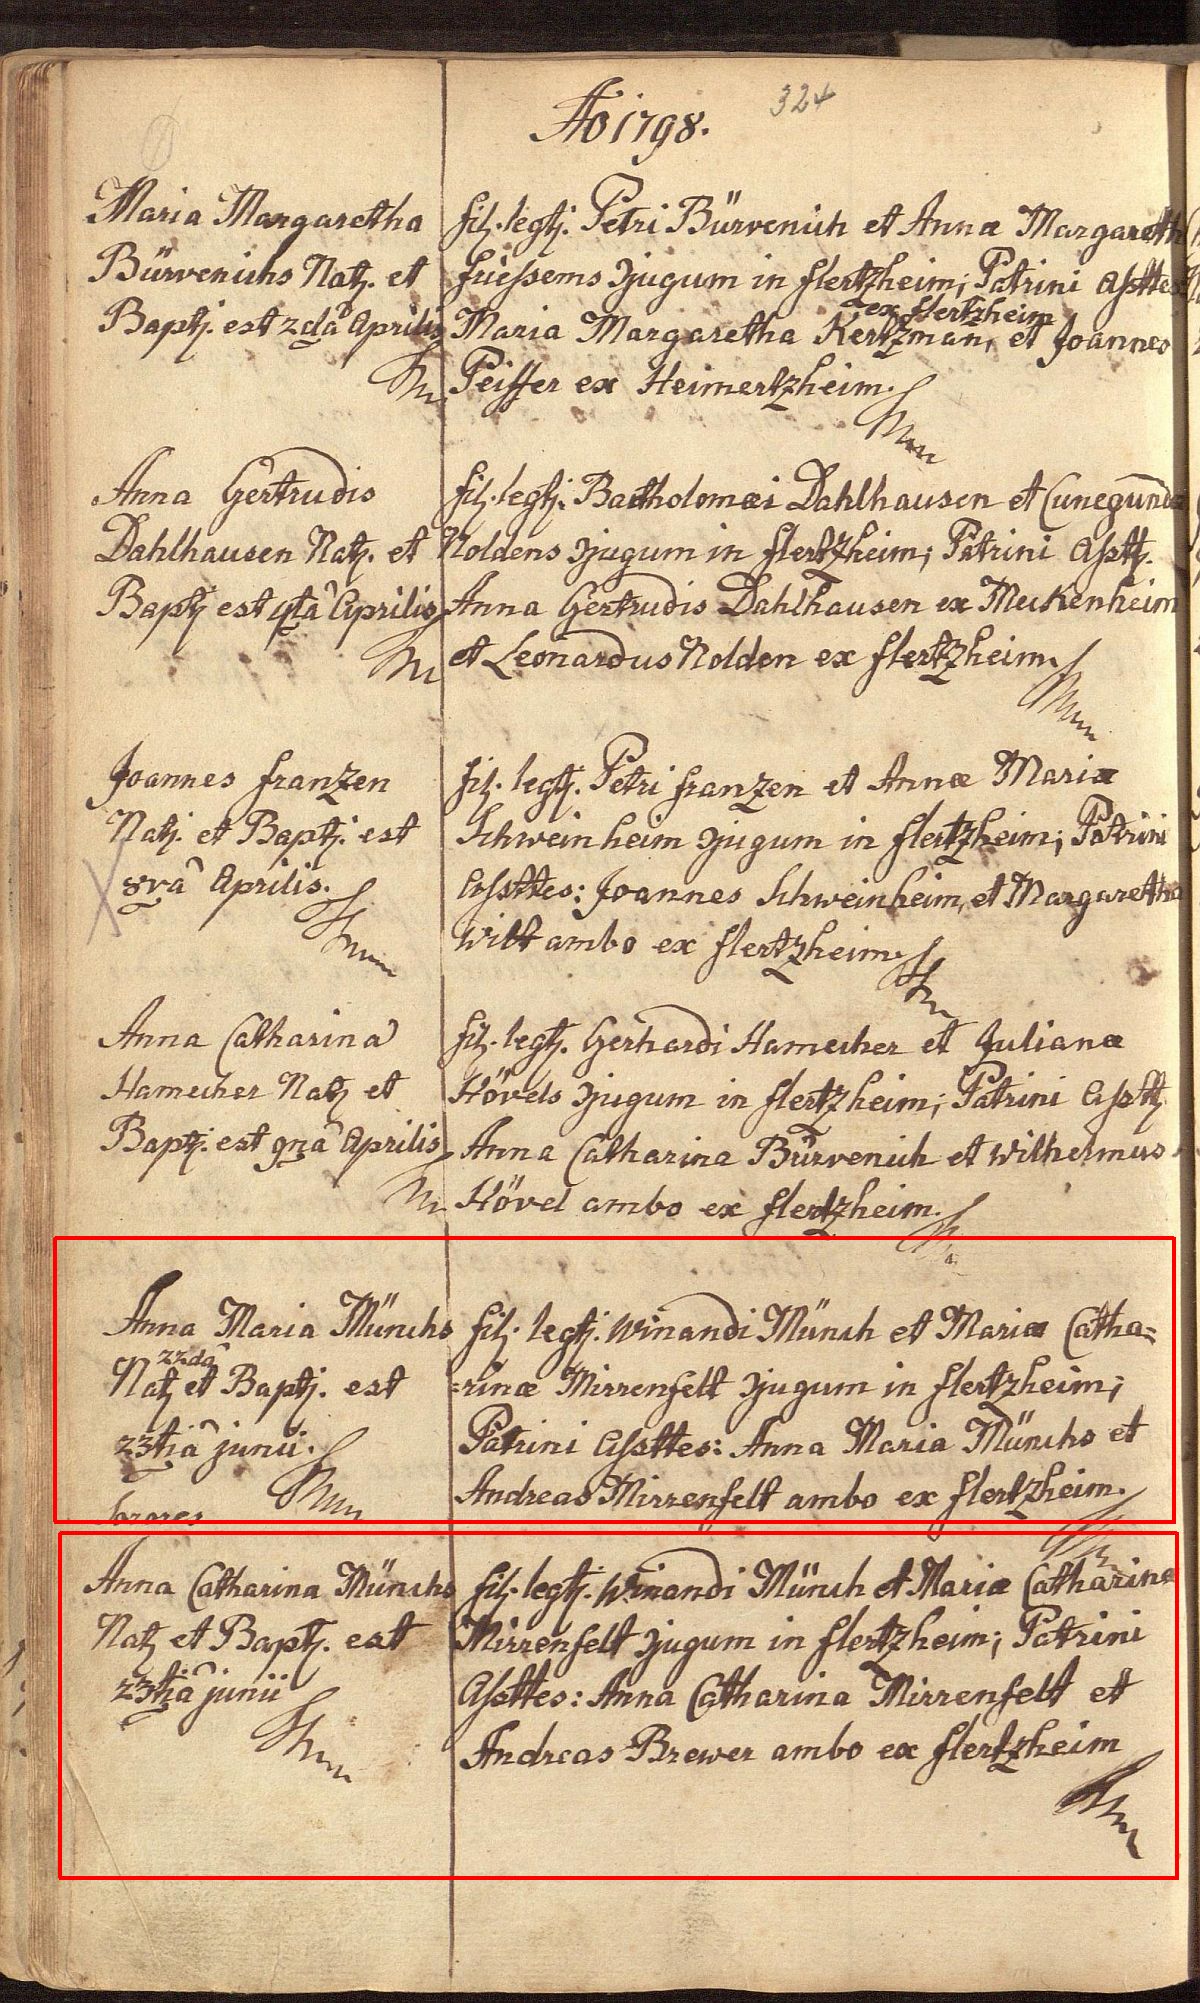 324
Ao 1798.
Maria Margaretha
Bürvenichs Natj. et
Baptj. est 2dâ Aprilis
fil. legtj. Petri Bürvenich et Annæ Margareth
friessems Jjugum in flertzheim; Patrini Assttes
ex flertzheim
Maria Margaretha Kertzman, et Joannes
Peiffer ex Heimertzheim.
Anna Gertrudis
Dahlhausen Natj. et
Baptj est 4tâ Aprilis
fil. legtj. Bartholomæi Dahlhausen et Cunegundæ
Noldens Jjugum in flertzheim; Patrini Asstt.
Anna Gertrudis Dahlhausen ex Meckenheim
et Leonardus Nolden ex flertzheim.
Joannes franzen
Natj. et Baptj. est
8vâ Aprilis.
fil. legtj. Petri franzen et Annæ Mariæ
Schweinheim Jjugum in flertzheim; Patrini
Assttes: Joannes Schweinheim, et Margaretha
Wilt ambo ex flertzheim.
Anna Catharina
Hamecher Natj et
Baptj. est 9nâ Aprilis
fil. legtj. Gerhardi Hamecher et Julianæ
Hövels Jjugum in flertzheim; Patrini Asstt.
Anna Catharina Bürvenich et Wilhelmus
Hövel ambo ex flertzheim.
Anna Maria Münchs
22dâ
Natj et Baptj. est
23tiâ junii.
fil. legtj. Winandi Münch et Mariæ Catha=
=rinæ Mirrenfelt Jjugum in flertzheim;
Patrini Assttes: Anna Maria Münchs et
Andreas Mirrenfelt ambo ex flertzheim.
Sorores
Anna Catharina Münchs
Natj et Baptj. est
23tiâ junii
fil. legtj. Winandi Münch et Mariæ Catharinæ
Mirrenfelt Jjugum in flertzheim; Patrini
Assttes: Anna Catharina Mirrenfelt et
Andreas Brewer ambo ex flertzheim